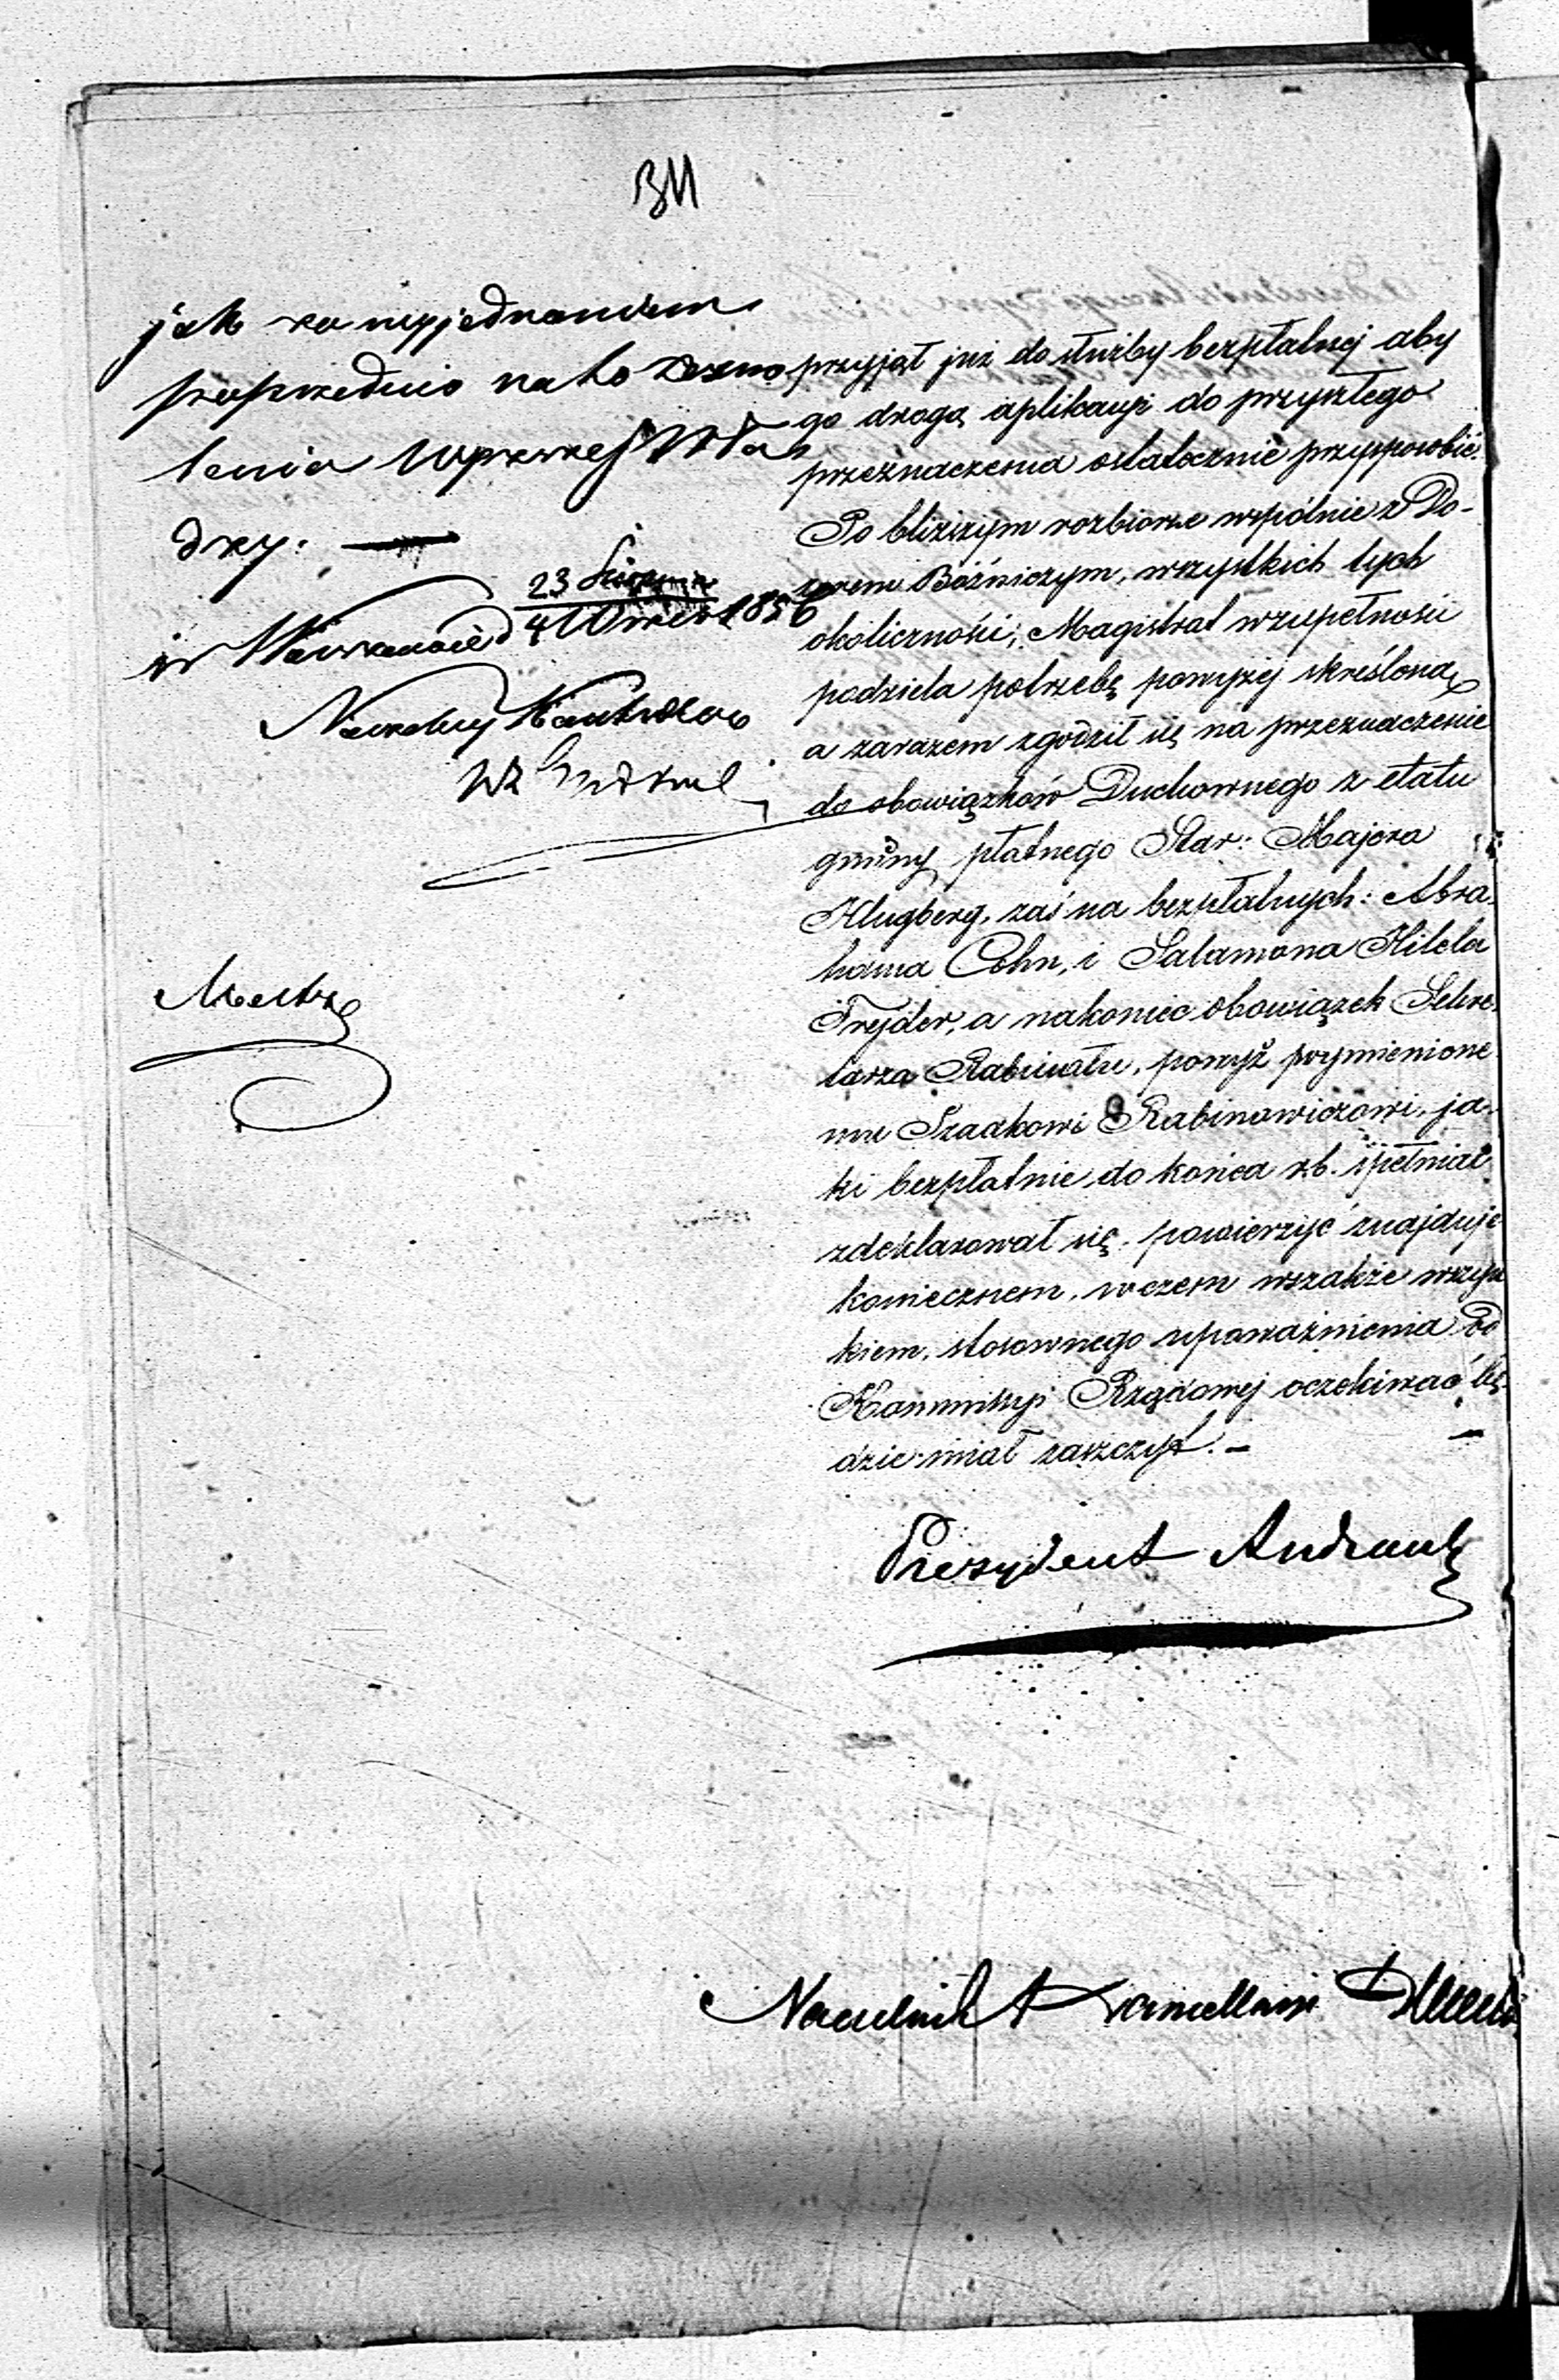 jak za wyjednaniem
poprzednio na to zezwo
lenia wyższej Wła
dzy.
w Warszawie d 23 Sierpnia
4 Wrześ 1856
Naczelny
WZ
przyjął już do służby bezpłatnej aby
go drogą aplikacyi do przyszłego
przeznaczenia ostatecznie przysposobić.
Po bliższym rozbiorze wspólnie z Do-
zorem Bóżniczym, wszystkich tych
okoliczności, Magistrat w zupełności
podziela potrzebę powyżej skreśloną,
a zarazem zgodził się na przeznaczenie
do obowiązków Duchownego z etatu
gminy płatnego Star: Majera
Klugberg, zaś na bezpłatnych: Abra,
hama Cohn, i Salamona Hilela
Frejder, a nakoniec obowiązek Sekre,
tarza Rabinatu, powyż wymienione
mu Izaakowi Rabinowiczowi, ja-
ki bezpłatnie do końca r.b. spełniać
zdeklarował się, powierzyć znajduje
koniecznem, w czem wszakże wszyst
kiem, stosownego upoważnienia Od
Kommissyi Rządowej oczekiwać bę-
dzie miał zaszczyt. –
Prezydent Andrault
Naczelnik Kancellaryi